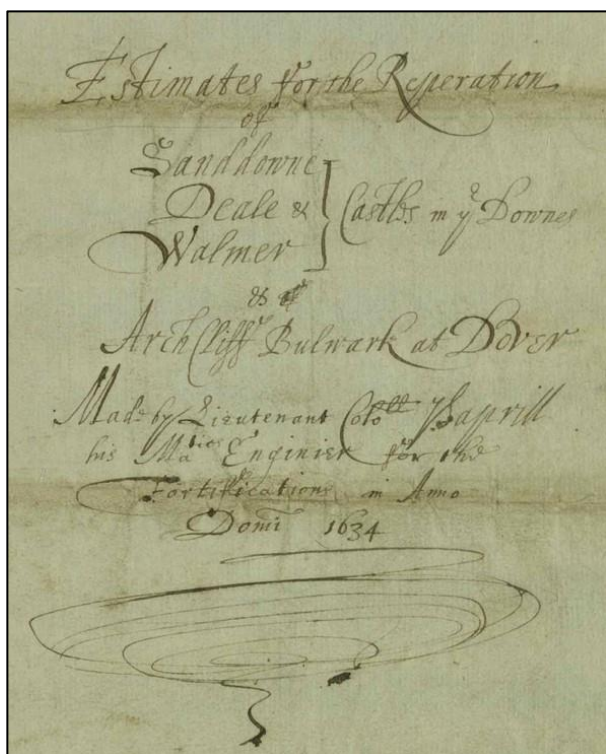 Estimates for the Reperation
of
Sanddowne
Deale &
Walmer
Castles in yͤ Downes
&
Arch Cliff Bulwark at Dover
Made by Lieutenant Coloˡˡ
his Maᵗⁱᵉˢ Enginier for the
Fortifications in Anno
Domi 1634